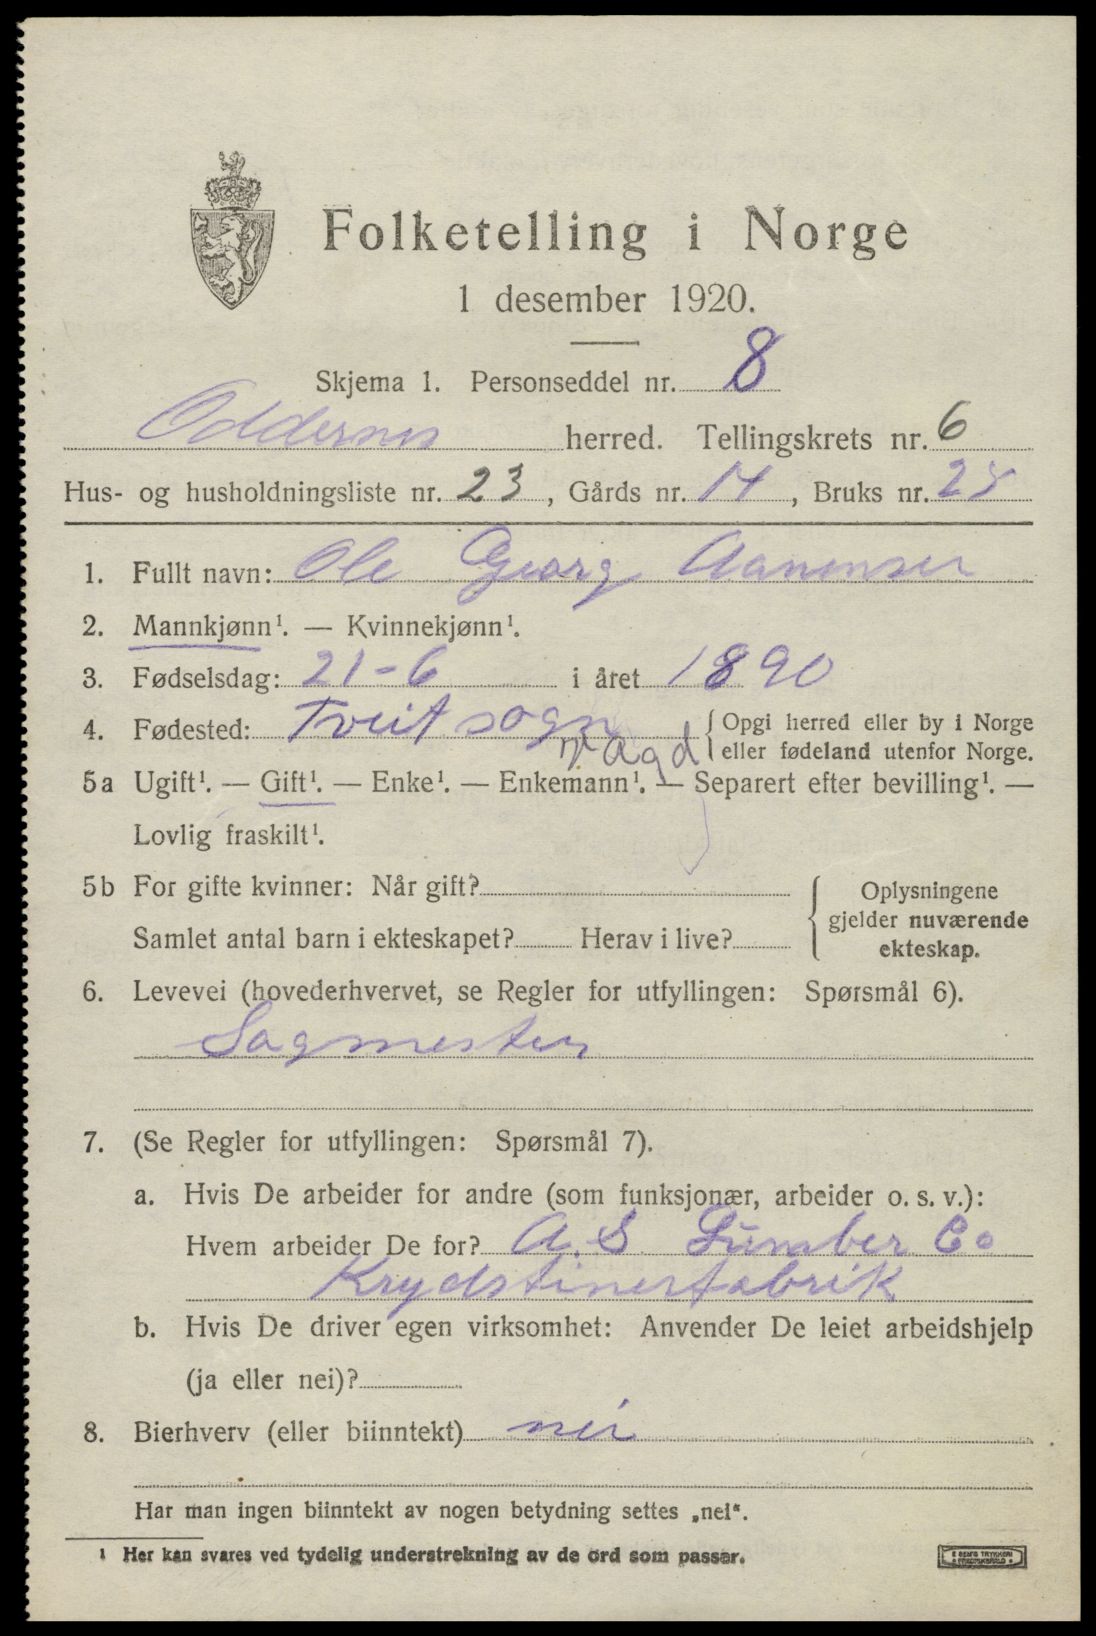 Folketelling i Norge
1 desember 1920.
Skjema 1. Personseddel nr. 8
Oddernes herred. Tellingskrets nr. 6
Hus- og husholdningsliste nr. 23, Gårds nr. 14, Bruks nr. 25
1. Fullt navn: Ole Georg Aanensen
2. Mannkjønn¹. — Kvinnekjønn¹.
3. Fødselsdag: 21-6 i året 1890
4. Fødested: Tveit sogn {Opgi herred eller by i Norge
V Agd eller fødeland utenfor Norge.
5a Ugift¹. — Gift¹. — Enke¹. — Enkemann¹. — Separert efter bevilling¹. —
Lovlig fraskilt¹.
5b For gifte kvinner: Når gift? { Oplysningene
gjelder nuværende
Samlet antal barn i ekteskapet? Herav i live? ekteskap.
6. Levevei (hovederhvervet, se Regler for utfyllingen: Spørsmål 6).
Sagmester
7. (Se Regler for utfyllingen: Spørsmål 7).
a. Hvis De arbeider for andre (som funksjonær, arbeider o. s. v.):
Hvem arbeider De for? A.S. Lumber Co
Krydsfinerfabrik
b. Hvis De driver egen virksomhet: Anvender De leiet arbeidshjelp
(ja eller nei)?
8. Bierhverv (eller biinntekt) nei
Har man ingen biinntekt av nogen betydning settes „nei“.
¹ Her kan svares ved tydelig understrekning av de ord som passer.